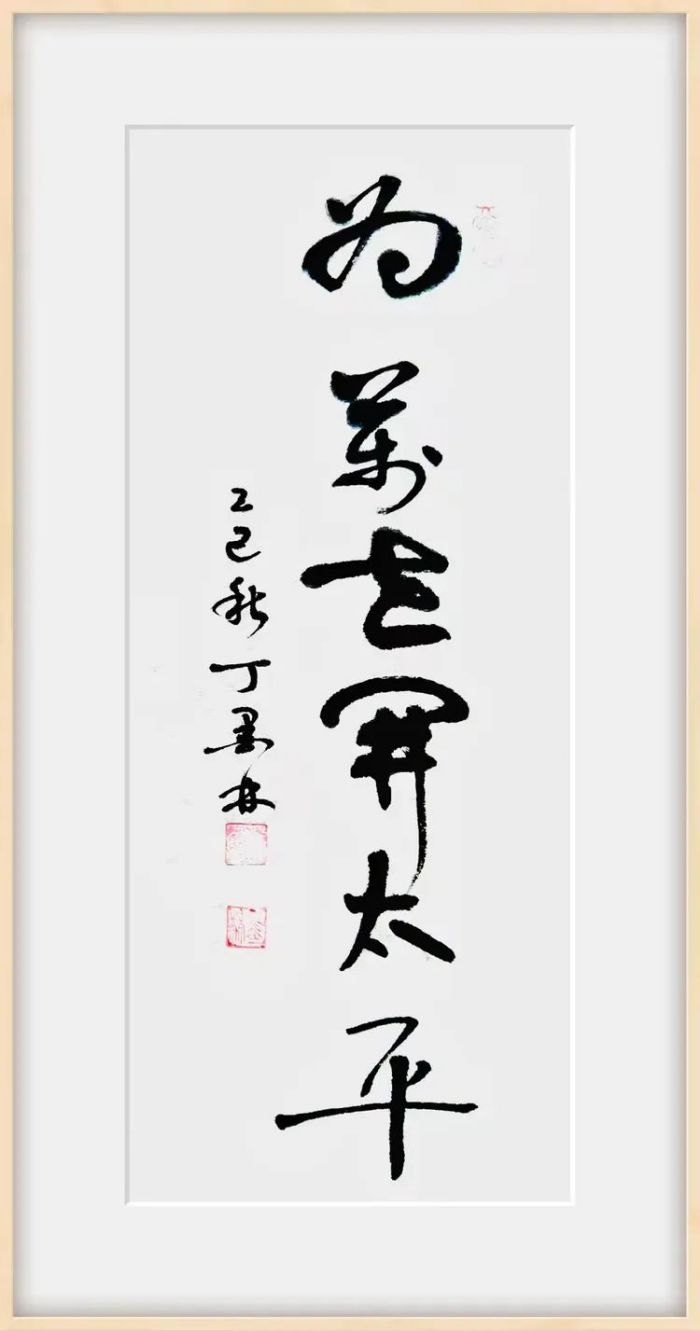 为萬世開太平
乙巳秋丁墨林